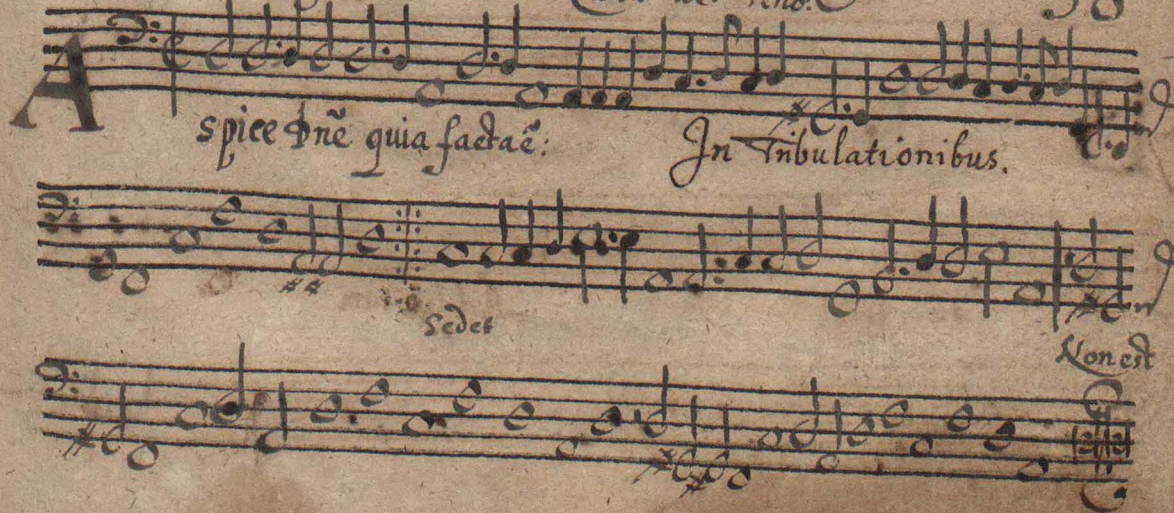 38
Aspice Dñe quia facta ē: In Tribulationibus.
Sedet
Non est